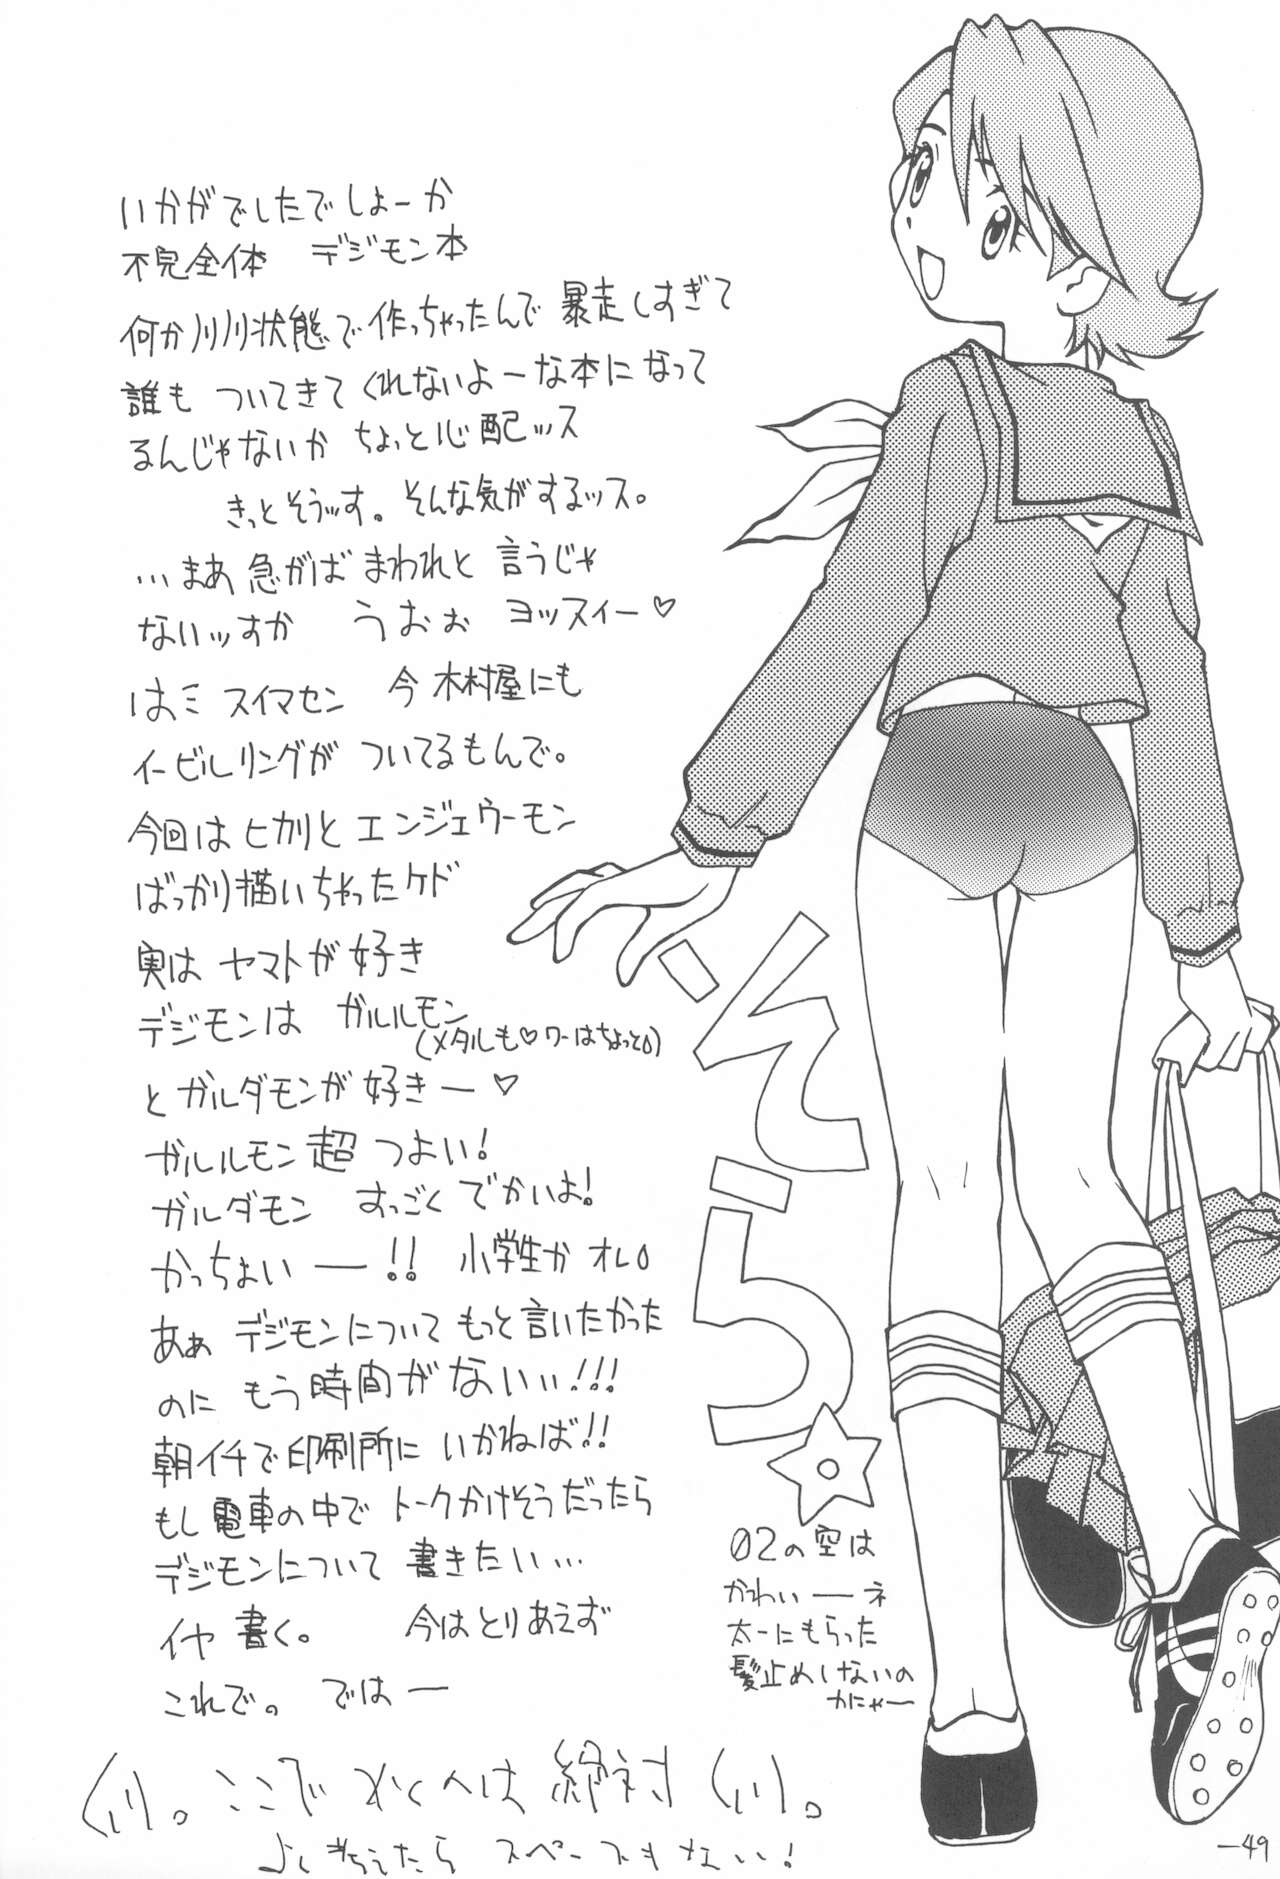 いかがでしたでしょーか
不完全体 デジモン本
何かノリノリ状態で作っちゃったんで 暴走しすぎて
誰も ついてきてくれないよーな本になって
るんじゃないか ちょっと心配ッス
きっとそうッす。そんな気がするッス。
…まあ 急がば まわれと 言うじゃ
ないッすか うおぉ ヨッスィー♡
はミ スイマセン 今 木村屋にも
イービルリングが ついてるもんで。
今回は ヒカリと エンジェウーモン
ばっかり描いちゃったケド
実は ヤマトが好き
デジモンは ガルルモン
(メタルも♡ワーはちょっと)
とガルダモンが好きー♡
ガルルモン 超 つよい!
ガルダモン すっごく でかいよ!
かっちょいー!! 小学生か オレ
あぁ デジモンについて もっと言いたかった
のに もう 時間がないぃ!!!
朝イチで印刷所に いかねば!!
もし 電車の中で トークかけそうだったら
デジモンについて 書きたい…
イヤ 書く。 今はとりあえず
これで。 ではー
そら☆
02の空は
かわいーネ
太一にもらった
髪止めしないの
かにゃー
ここで は絶対
よく考えたら スペースもない!
-49